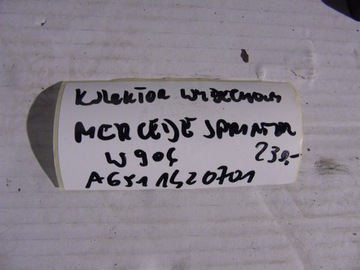 Kolektor wydechowy
MERCEDES SPRINTER
W906 230,-
A6511420701